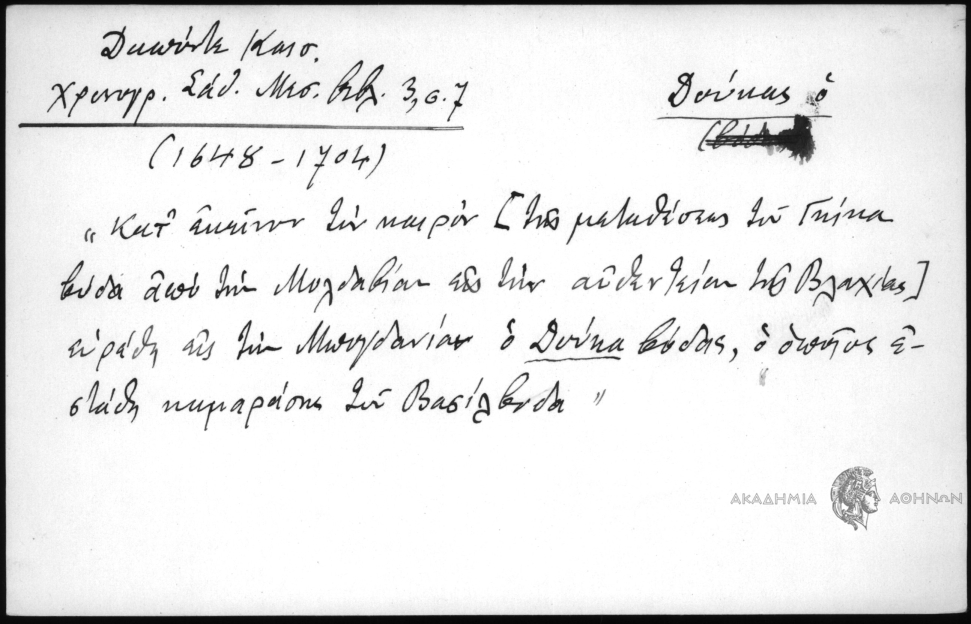 Δαπόντε Καισ.
Χρονογρ. Σάθ. Μεσ. βιβλ. 3, σ. 7
Δούκας ὁ
(1648 - 1704)
„ Κατ' ἐκεῖνον τὸν καιρὸν [τῆς μεταθέσεως τοῦ Γκίκα
βόδα ἀπὸ τὴν Μολδαβίαν εἰς τὴν αὐθεντείαν τῆς Βλαχίας]
εὑρέθη εἰς τὴν Μπογδανίαν ὁ Δούκα βόδας, ὁ ὁποῖος ἐ-
στάθη καμαράσης τοῦ Βασίλβοδα "
ΑΚΑΔΗΜΙΑ ΑΘΗΝΩΝ